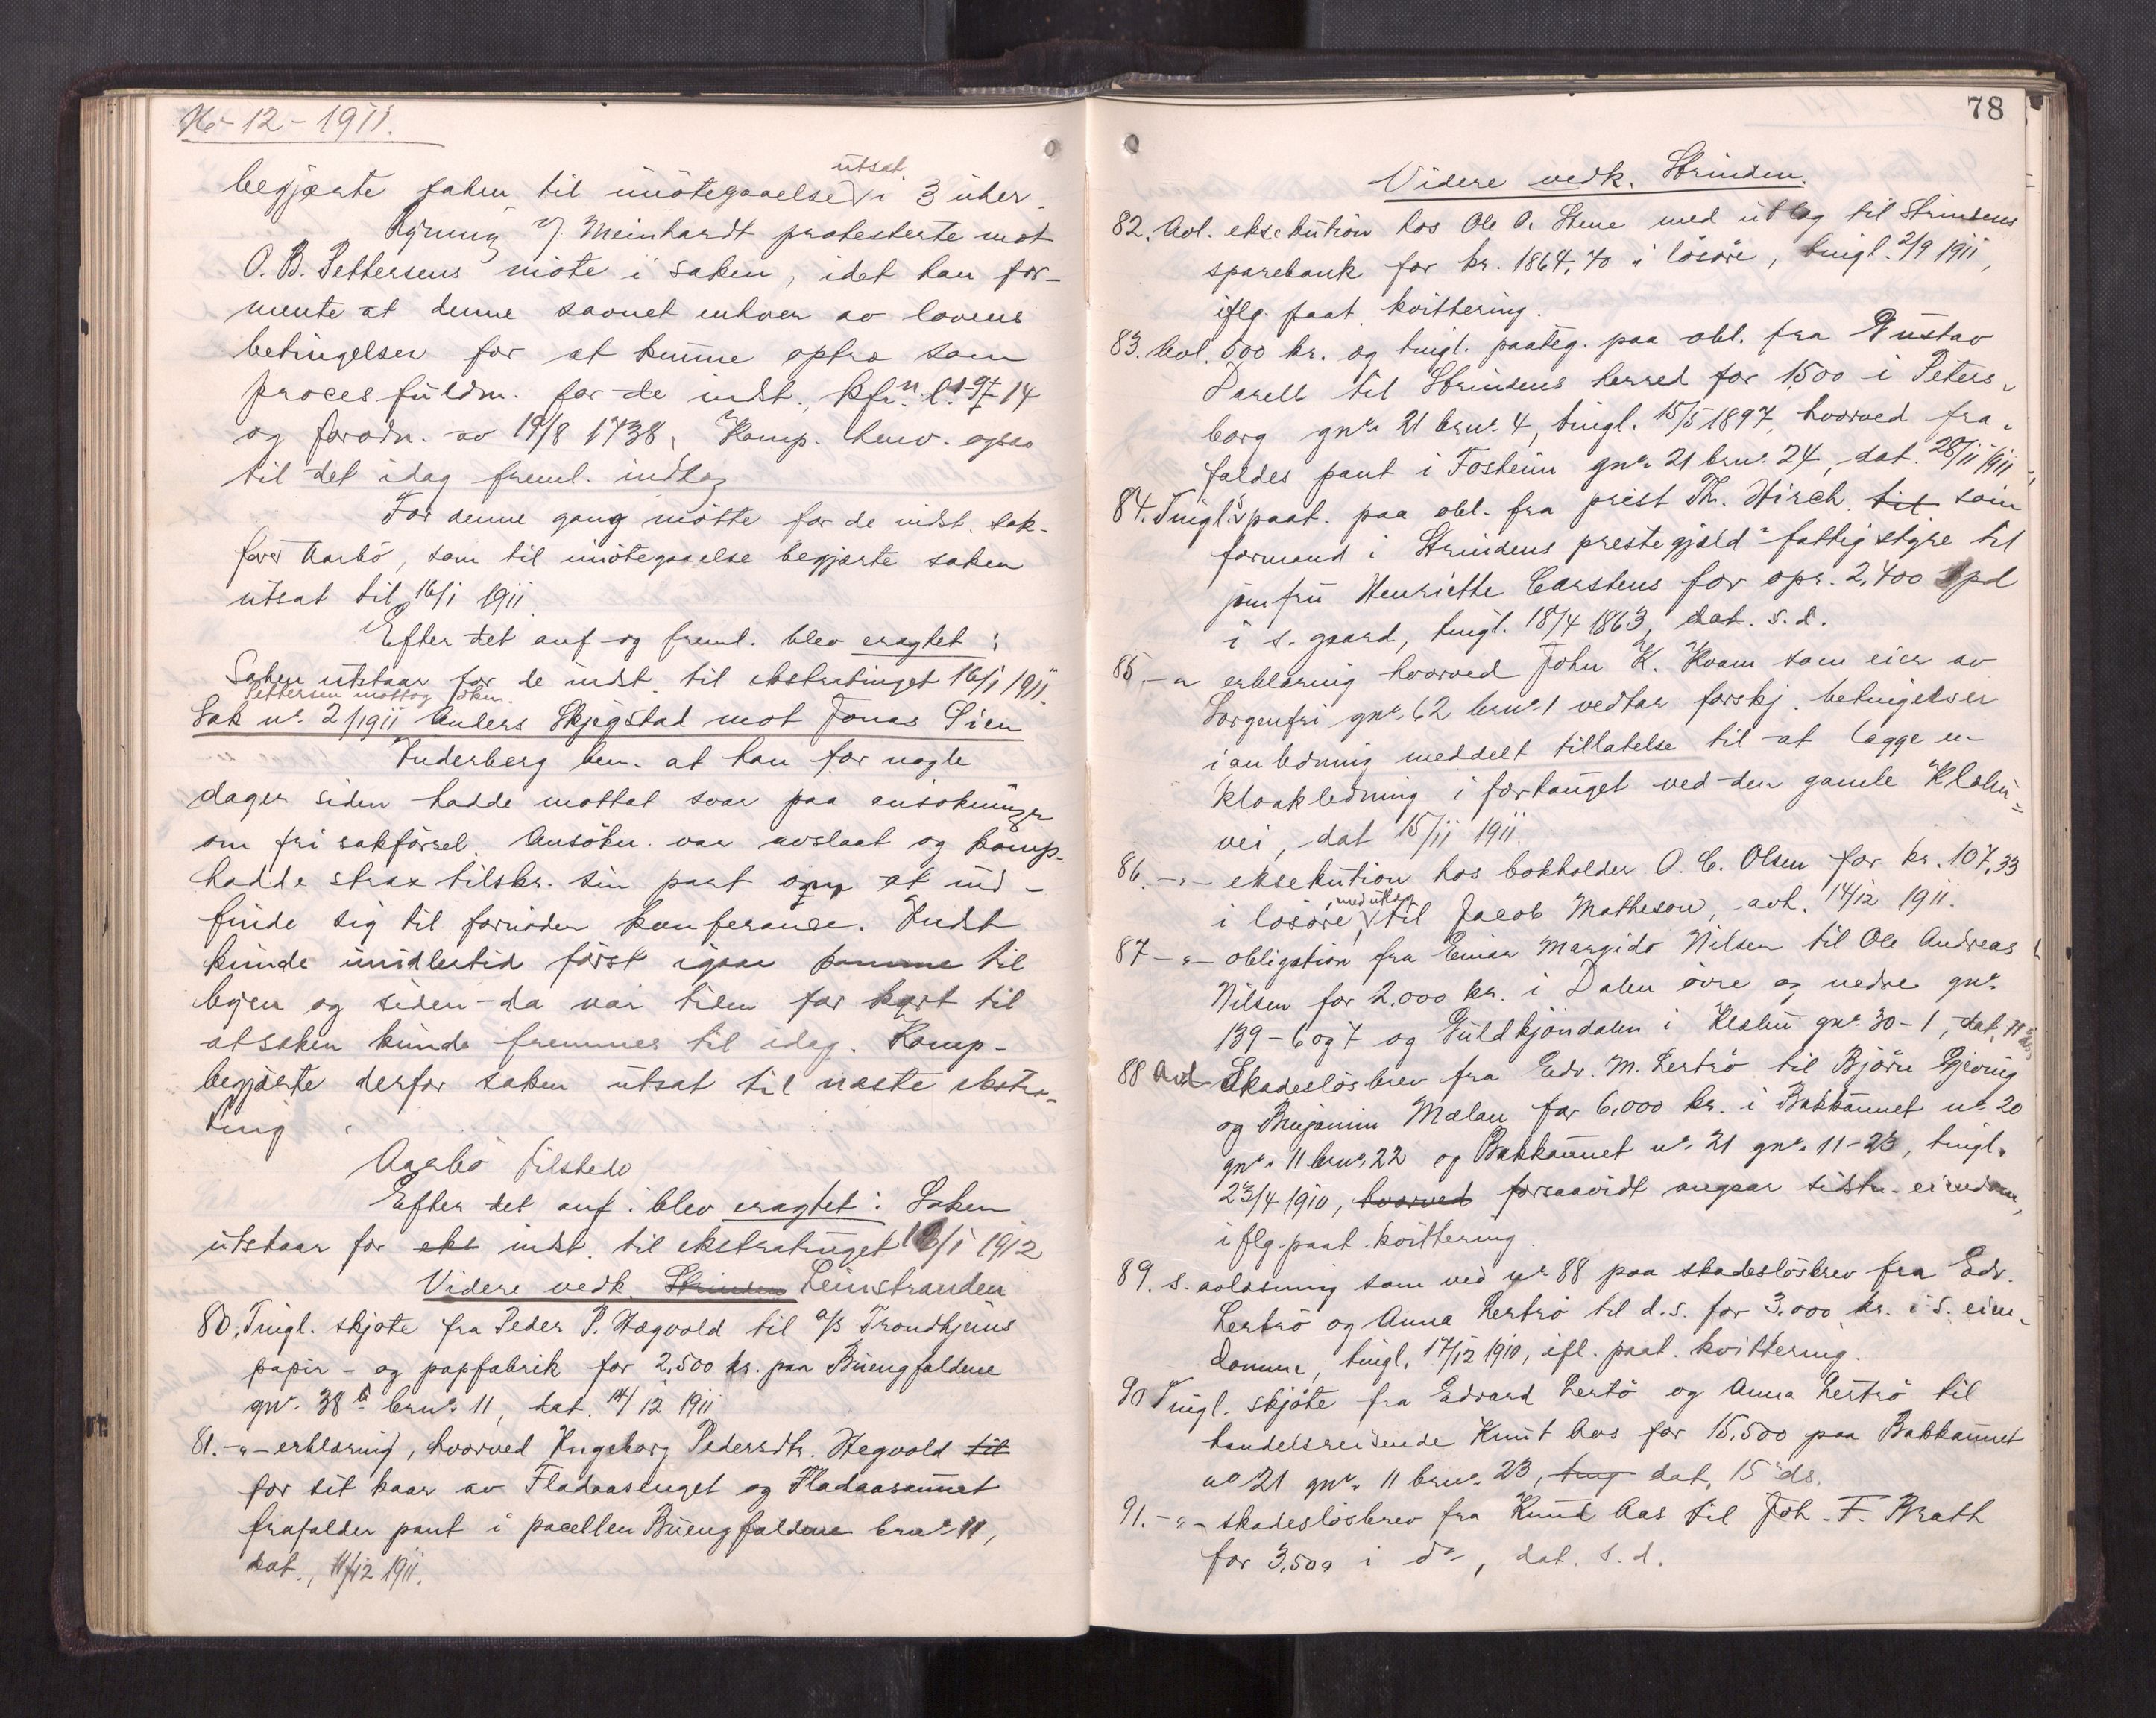 16-12-1911.
begjærte saken til imötegaaelse utsat i 3 uker.
Meinhardt protesterte mot
O. B. Pettersens möte i saken, idet han for-
mente at denne savnet enhver av lovens
betingelser for at kunne optræ som
procesfuldm. for de indst.
og forordn. av 19/8 1738. Komp. henv. ogsaa
til det idag freml. indlæg
For denne gang mötte for de indst. sak-
förer Aarbö, som til imötegaaelse begjærte saken
utsat til 16/1 1911.
Efter det anf- og freml. blev eragtet:
Saken utstaar for de indst. til ekstratinget 16/1 1911.
Pettersen mottog saken.
Sak nr. 2/1911 Anders Skjegstad mot Jonas Lien
Inderberg bem. at han for nogle
dager siden hadde mottat svar paa ansökninger
om fri sakförsel. Ansökn. var avslaat og komp.
hadde strax tilskr. sin part om at ind-
finde sig til fornöden konferanse. Indst
kunde imidlertid först igaar komme til
byen og siden da var tiden for kort til
at saken kunde fremmes til idag. Komp.
begjærte derfor saken utsat til næste ekstra-
ting.
Aarbö tilstede
Efter det anf. blev eragtet: Saken
utstaar for eks indst. til ekstratinget 16/1 1912
Videre vedk. Strinden Leinstranden
80. Tingl. skjöte fra Peder P. Hegvold til a/s Trondhjems
papir- og papfabrik for 2,500 kr. paa Buengfaldene
gnr. 38 b brnr. 11, dat. 14/12 1911
81. -"- erklæring, hvorved Ingeborg Pedersdtr. Hegvold til
for sit kaar av Fladaasenget og Fladaasaunet
frafalder pant i parcellen Buengfaldene brnr 11,
dat., 11/12 1911.
78
Videre vedk. Strinden.
82. Avl. eksekution hos Ole O. Stene med utlæg til Strindens
sparebank for kr. 1864,70 i lösöre, tingl. 2/9 1911,
iflg. paat. kvittering.
83. Avl. 500 kr. og tingl. paateg. paa obl. fra Gustav
Darell til Strindens herred for 1,500 i Peters-
borg gnr. 21 brnr. 4, tingl. 15/5 1897, hvorved fra-
faldes pant i Fosheim gnr. 21 brnr. 24, dat. 28/11 1911,
84. Tingl. paat. paa obl. fra prest Th. Hirsch til som
formand i Strindens prestegjæld's fattigstyre til
jomfru Henriette Carstens for opr. 2,400 Spd
i s. gaard, tingl. 18/4 1863, dat. s.d.
85. -"- erklæring hvorved John K. Kvam som eier av
Sorgenfri gnr. 62 brnr. 1 vedtar forskj. betingelser
i anledning meddelt tillatelse til at lægge en
kloakledning i fortauget ved den gamle Klæbu-
vei, dat 15/11 1911.
86. -"- eksekution hos bokholder O. C. Olsen for kr. 107,33
i lösöre, med utlæg til Jacob Matheson, avh. 14/12 1911.
87 -"- obligation fra Einar Margido Nilsen til Ole Andreas
Nilsen for 2.000 kr. i Dalen övre og nedre gnr.
139-6 og 7 og Guldkjöndalen i Klæbu gnr. 30-1, dat.
88 Avl Skadeslösbrev fra Edv. M. Lertrö til Björn Gjeving
og Benjamin Mælan for 6,000 kr. i Bakkaunet nr. 20
gnr. 11 brnr. 22 og Bakkaunet nr. 21 gnr. 11-23, tingl.
23/4 1910, hvorved forsaavidt angaar sidstn. eiendom,
iflg. paat. kvittering.
89. s. avlæsning som ved nr 88 paa skadeslösbrev fra Edv.
Lertrö og Anna Lertrö til d.s. for 3.000 kr. i s. eien-
domme, tingl. 17/12 1910, ifl. paat. kvittering.
90 Tingl. skjöte fra Edvard Lertö og Anna Lertrö til
handelsreisende Knut Aas for 15.500 paa Bakkaunet
no 21 gnr. 11 brnr. 23, ting dat. 15 ds.
91. -"- skadeslösbrev fra Knud Aas til Joh. F. Brath
for 3,500 i do, dat. s.d.